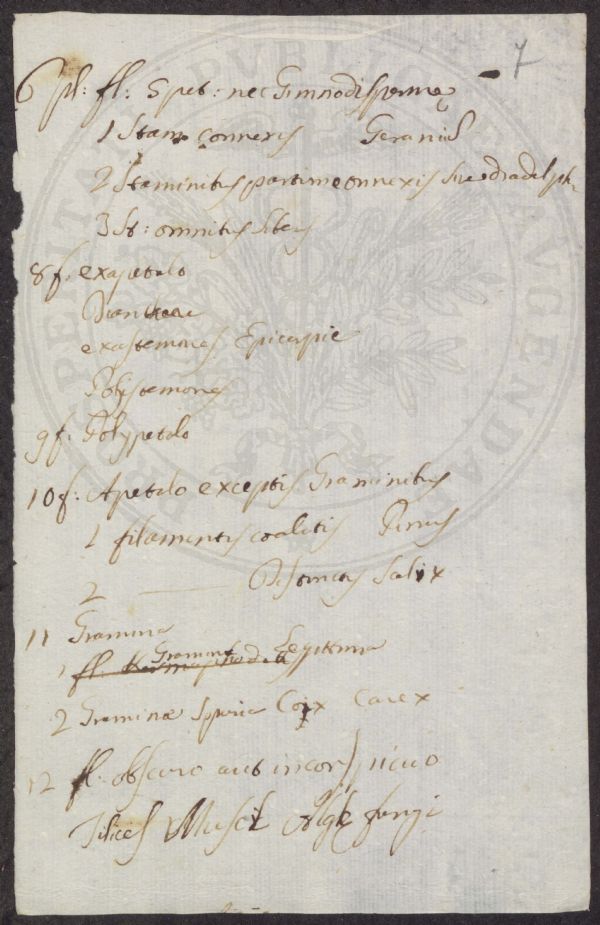 7
pl: fl: 5 pet: nec Gimnodispermę
1 Stam connexis Geraniū
2 Staminibus partim connexis sive diadelph:
3 St: omnibus liberis
8 f. exapetalo
Diantherae
exastemones Epicarpie
Polistemones
9 f. Polypetalo
10 f. Apetalo exceptis Graminibus
1 filamentis coalitis Pinus
2 —— Salix
11 Gramina
1 fl. Gramina Legitima
2 Graminæ Spuria Coix Carex
12 fl. obscuro aut inconspicuo
Filices Musci Algę fungi